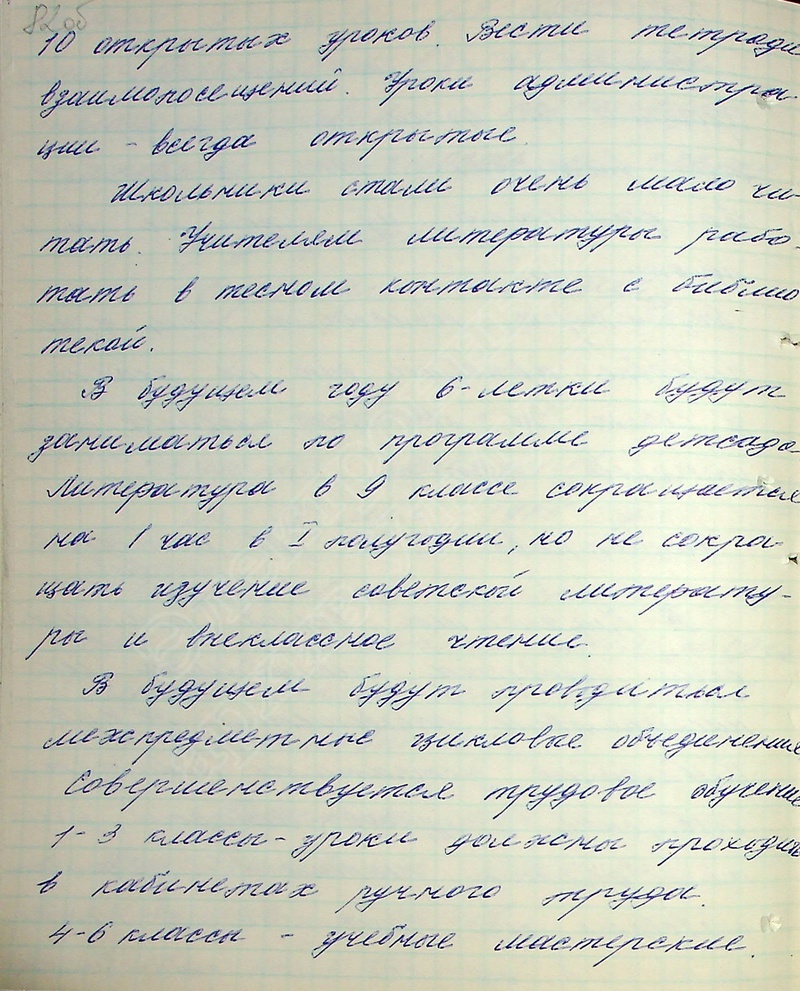 82об
10 открытых уроков. Вести тетради
взаимопосещений. Уроки администра-
ции - всегда открытые.
Школьники стали очень мало чи-
тать. Учителям литературы рабо-
тать в тесном контакте с библио
текой.
В будущем году 6-летки будут
заниматься по программе детсада.
Литература в 9 классе сокращается
на 1 час в I полугодии, но не сокра-
щать изучение советской литерату-
ры и внеклассное чтение.
В будущем будут проводиться
межпредметные цикловые объединения
Совершенствуется трудовое обучение
1-3 классы - уроки должны проходить
в кабинетах ручного труда.
4-6 классы - учебные мастерские.